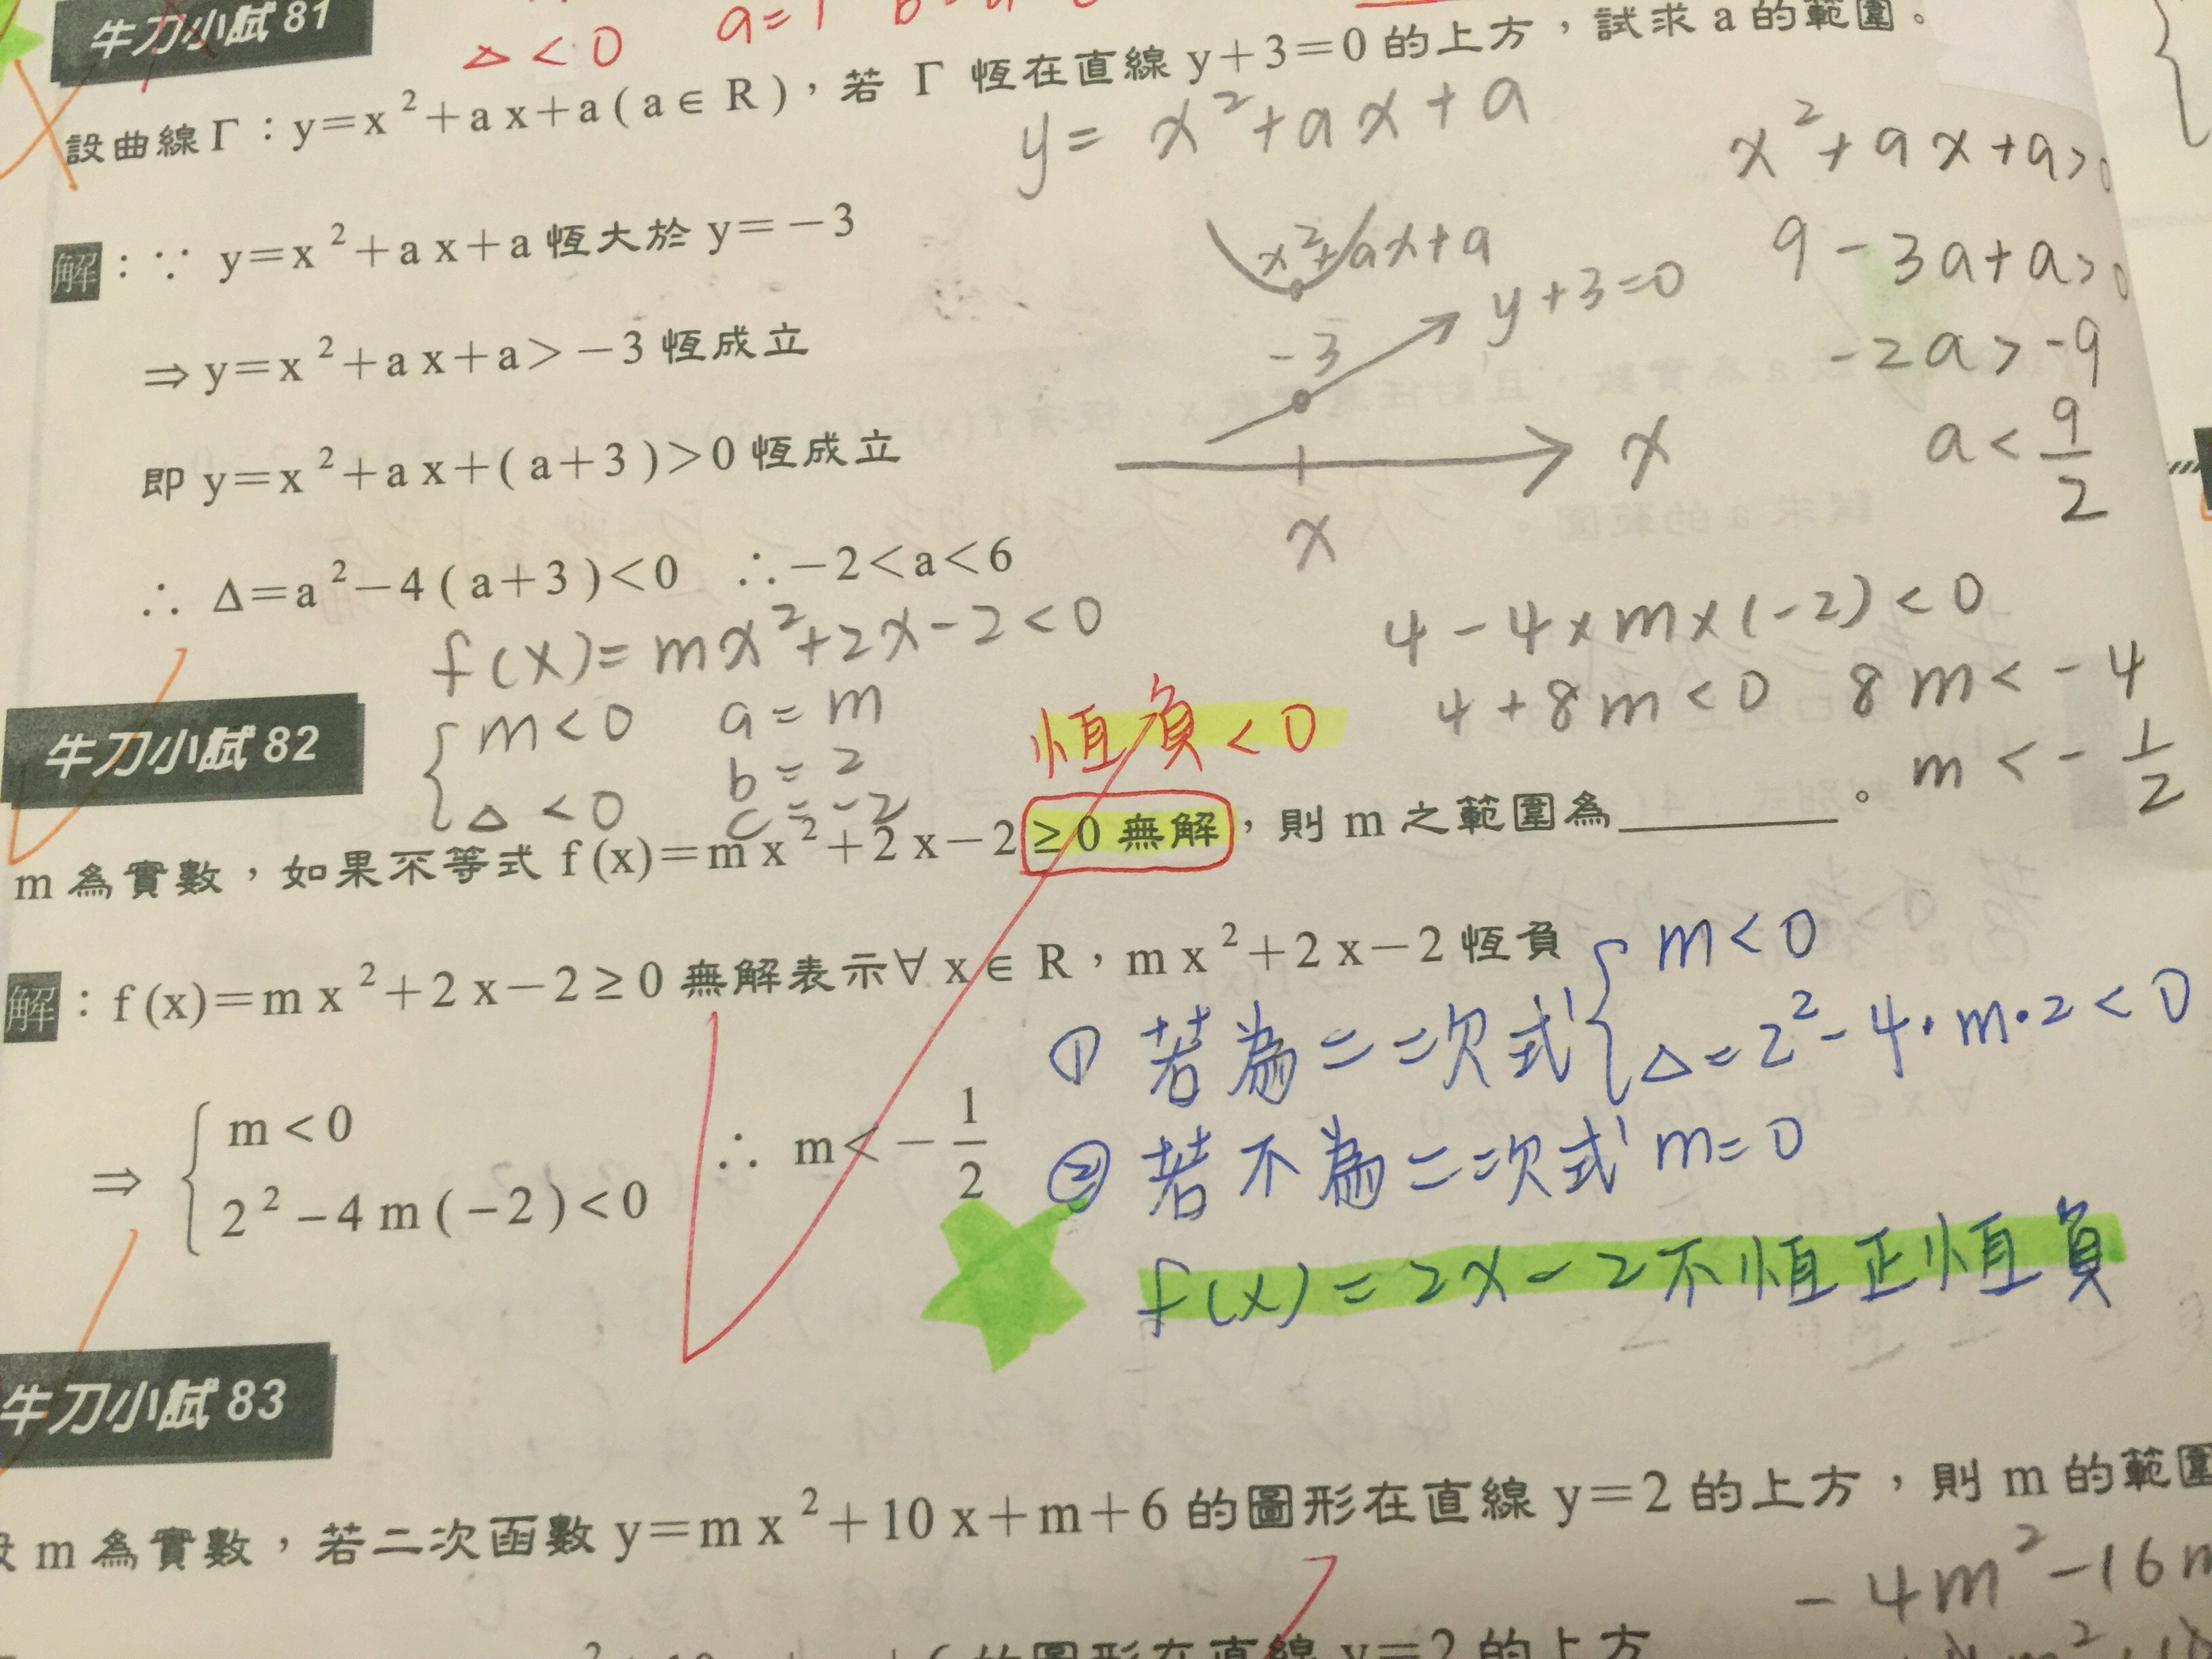 牛刀小試 81
Δ < 0
設曲線Γ：y=x²+ax+a(a∈R)，若 Γ 恆在直線 y+3=0 的上方，試求 a 的範圍。
y= x²+ax+a
x²+ax+a>0
解：∵ y=x²+ax+a 恆大於 y=−3
x²+ax+a
9-3a+a>0
y+3=0
-3
⇒y=x²+ax+a>−3 恆成立
-2a>-9
即 y=x²+ax+(a+3)>0 恆成立
x
a< 9/2
x
∴ Δ=a²−4(a+3)<0 ∴−2<a<6
f(x)= mx²+2x-2<0
4-4×m×(-2)<0
4+8m<0 8m<-4
m<-1/2
牛刀小試 82
{ m<0
Δ<0
a=m
b=2
c=-2
恆負<0
m 為實數，如果不等式 f(x)=mx²+2x−2≥0 無解，則 m 之範圍為________。
解：f(x)=mx²+2x−2≥0 無解表示∀x∈R，mx²+2x−2 恆負
① 若為二次式 { m<0
Δ=2²-4·m·2<0
⇒ { m<0
2²−4m(−2)<0
∴ m<−1/2
② 若不為二次式 m=0
f(x)=2x-2不恆正恆負
牛刀小試 83
m 為實數，若二次函數 y=mx²+10x+m+6 的圖形在直線 y=2 的上方，則 m 的範圍
-4m²-16m
的圖形在直線 y=2 的上方